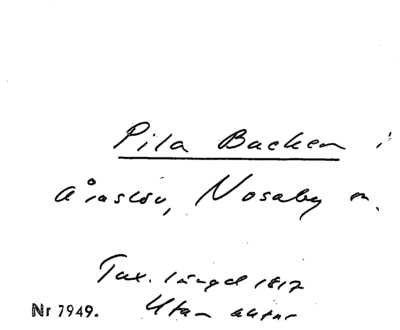 Pila Backen i
Åraslöv, Nosaby sn.
Tax. längd 1817
Nr 7949. Utan antar